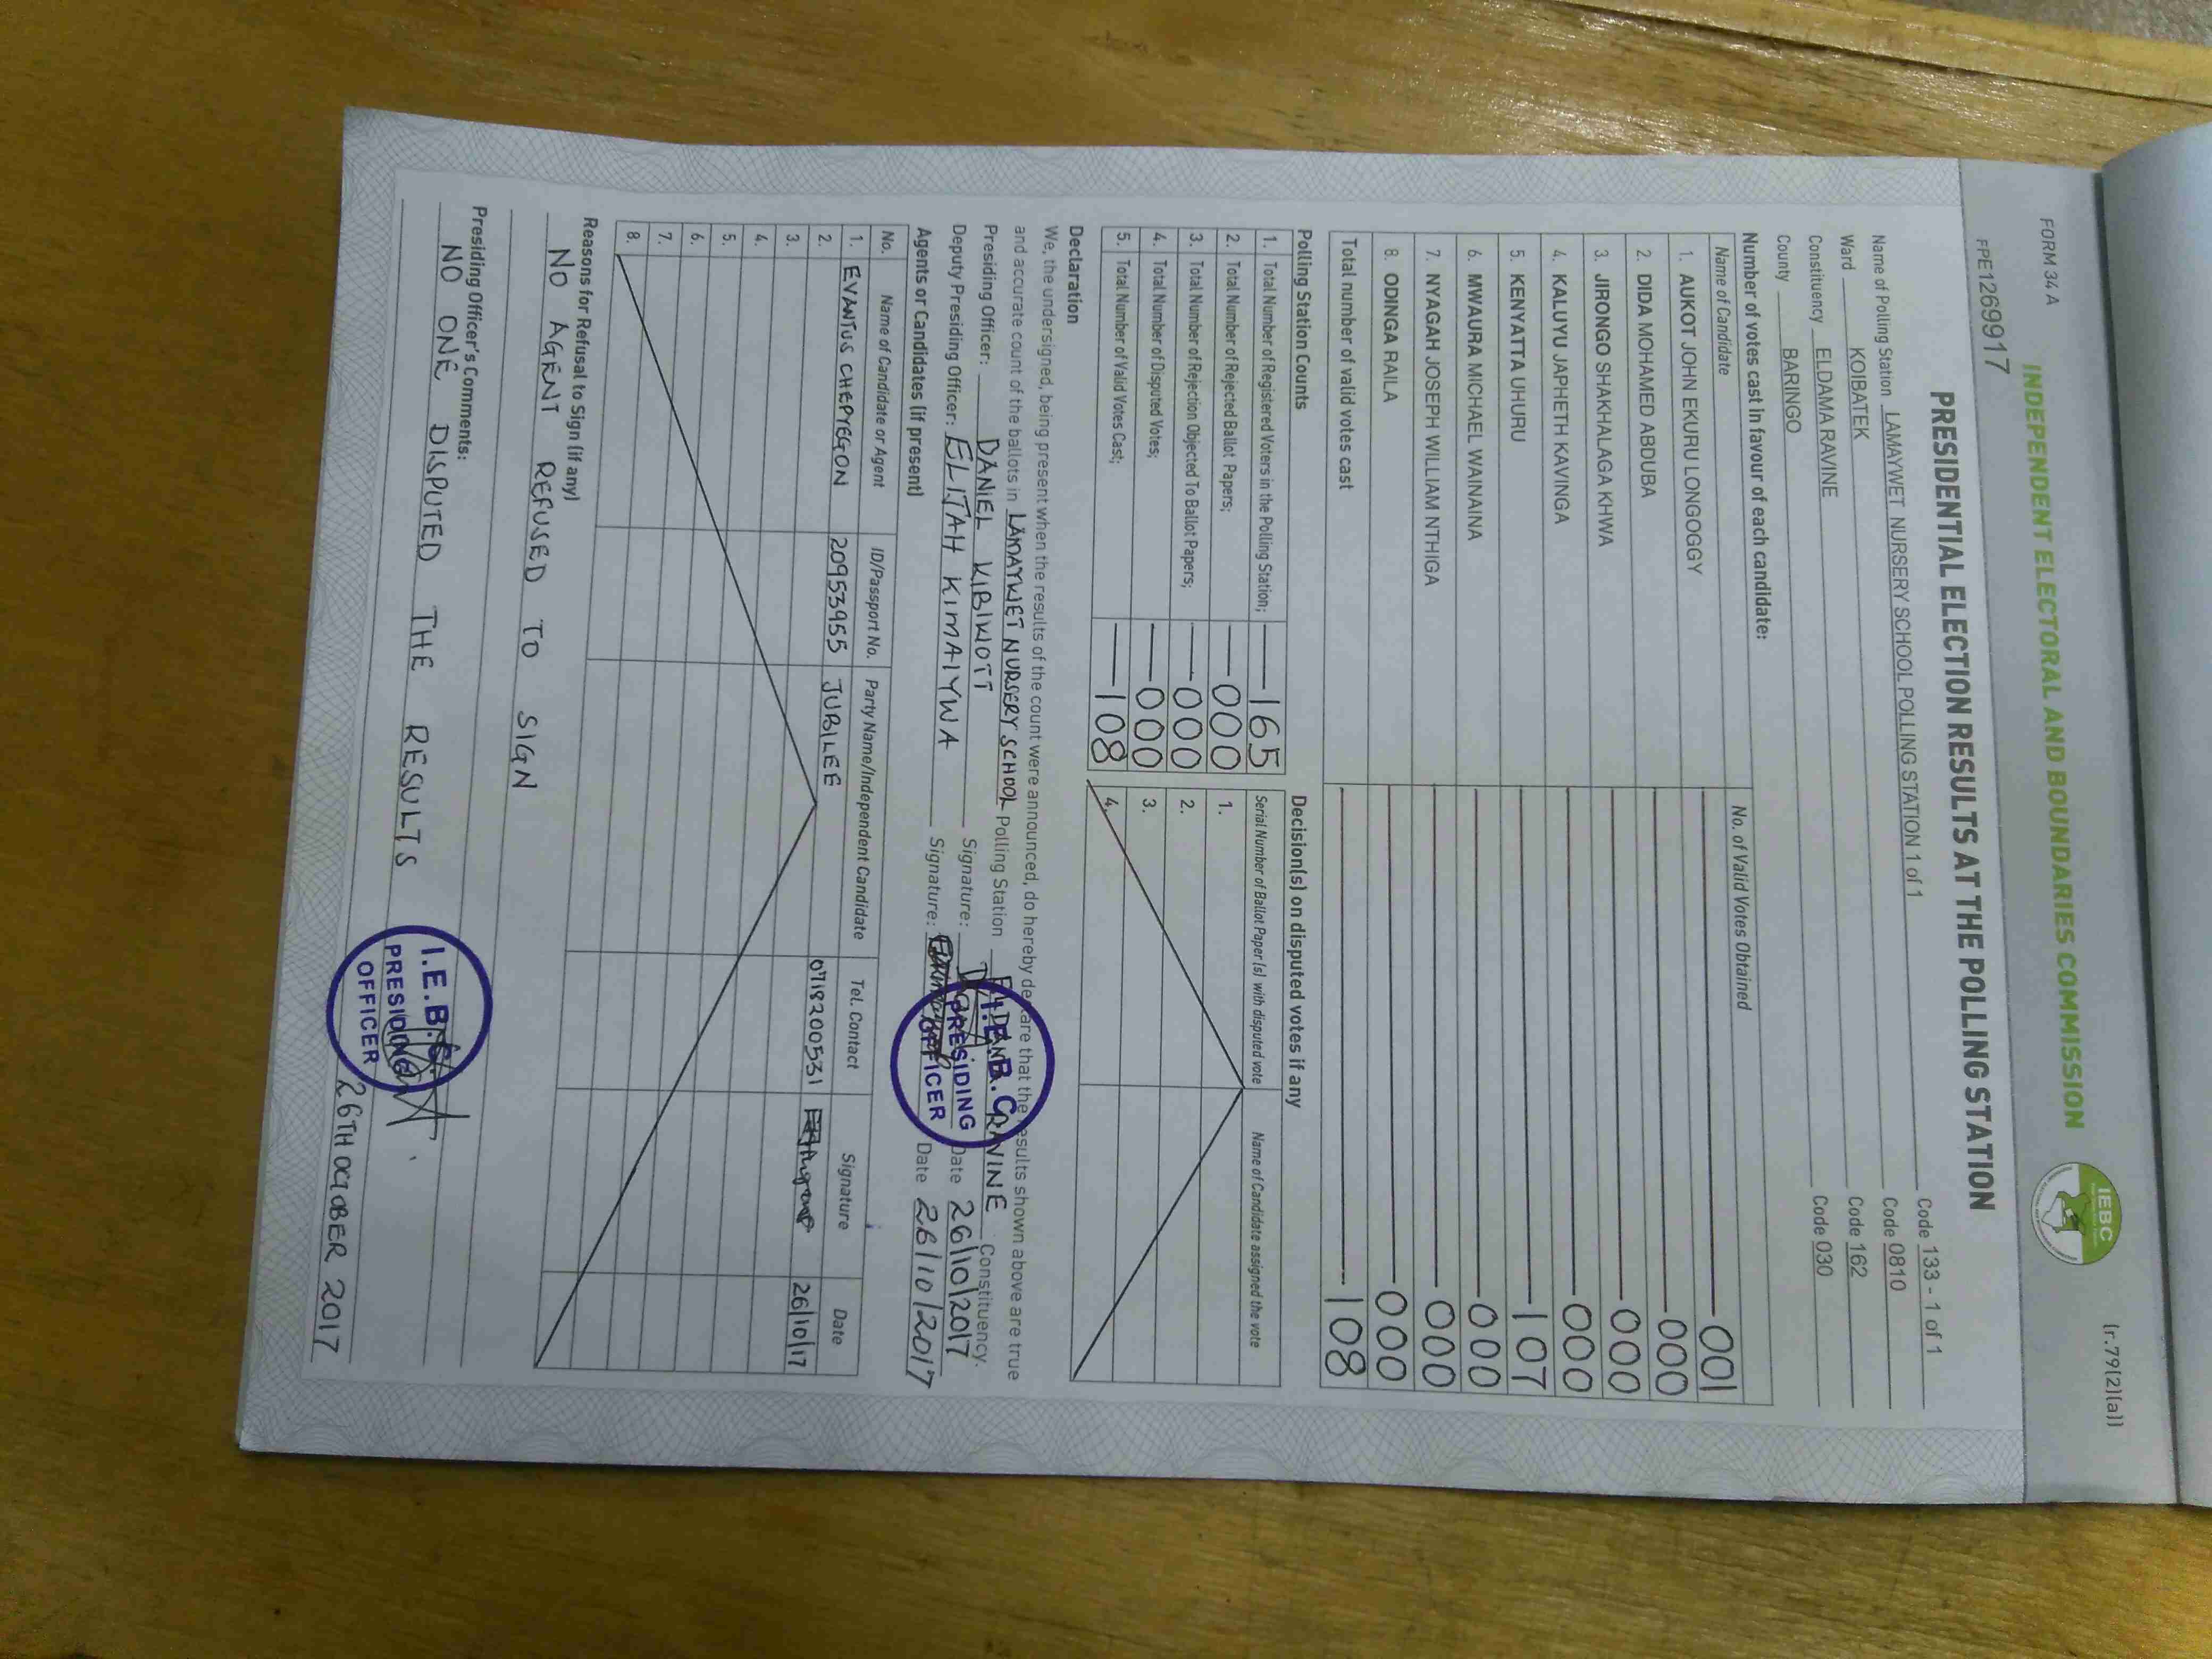 FORM 34 A
(r.79(2)(a))
INDEPENDENT ELECTORAL AND BOUNDARIES COMMISSION
IEBC
FPE1269917
PRESIDENTIAL ELECTION RESULTS AT THE POLLING STATION
Name of Polling Station LAMAYWET NURSERY SCHOOL POLLING STATION 1 of 1 Code 133 - 1 of 1
Ward KOIBATEK Code 0810
Constituency ELDAMA RAVINE Code 162
County BARINGO Code 030
Number of votes cast in favour of each candidate:
Name of Candidate No. of Valid Votes Obtained
1. AUKOT JOHN EKURU LONGOGGY 001
2. DIDA MOHAMED ABDUBA 000
3. JIRONGO SHAKHALAGA KHWA 000
4. KALUYU JAPHETH KAVINGA 000
5. KENYATTA UHURU 107
6. MWAURA MICHAEL WAINAINA 000
7. NYAGAH JOSEPH WILLIAM NTHIGA 000
8. ODINGA RAILA 000
Total number of valid votes cast 108
Polling Station Counts
1. Total Number of Registered Voters in the Polling Station; 165
2. Total Number of Rejected Ballot Papers; 000
3. Total Number of Rejection Objected To Ballot Papers; 000
4. Total Number of Disputed Votes; 000
5. Total Number of Valid Votes Cast; 108
Decision(s) on disputed votes if any
Serial Number of Ballot Paper (s) with disputed vote Name of Candidate assigned the vote
1.
2.
3.
4.
Declaration
We, the undersigned, being present when the results of the count were announced, do hereby declare that the results shown above are true
and accurate count of the ballots in LAMAYWET NURSERY SCHOOL Polling Station ELDAMA RAVINE Constituency.
Presiding Officer: DANIEL KIBIWOTT Signature: Date 26/10/2017
Deputy Presiding Officer: ELITAH KIMAIYWA Signature: Date 26/10/2017
I.E.B.C.
PRESIDING
OFFICER
Agents or Candidates (if present)
No. Name of Candidate or Agent ID/Passport No. Party Name/Independent Candidate Tel. Contact Signature Date
1. EVANTUS CHEPYEGON 20953955 JUBILEE 0718200531 26/10/17
2.
3.
4.
5.
6.
7.
8.
Reasons for Refusal to Sign (if any)
NO AGENT REFUSED TO SIGN
Presiding Officer's Comments:
NO ONE DISPUTED THE RESULTS
I.E.B.C.
PRESIDING
OFFICER
26TH OCTOBER 2017